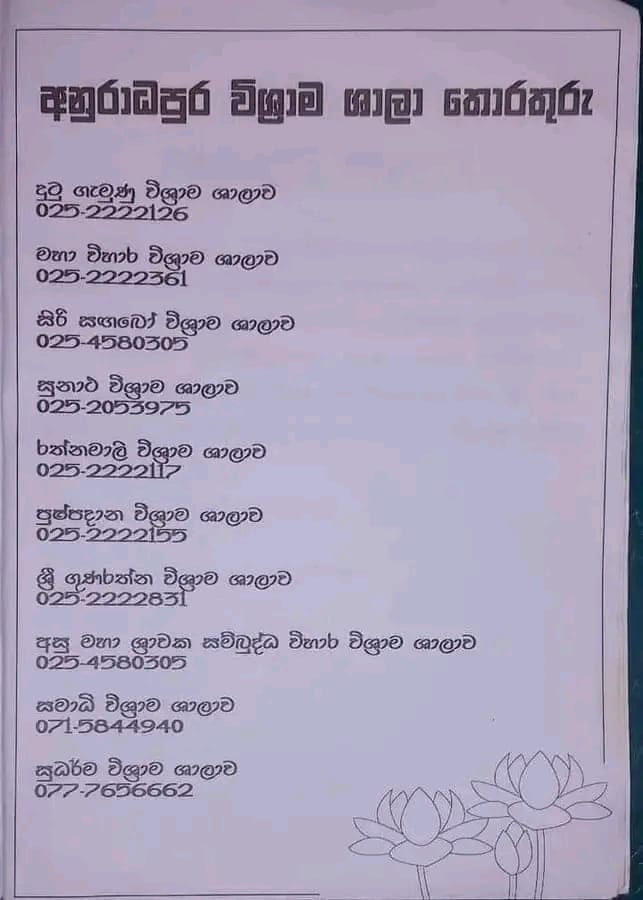 අනුරාධපුර විශ්‍රාම ශාලා තොරතුරු
දුටු ගැමුණු විශ්‍රාම ශාලාව
025-2222126
මහා විහාර විශ්‍රාම ශාලාව
025-2222361
සිරි සඟබෝ විශ්‍රාම ශාලාව
025-4580305
සුනාථ විශ්‍රාම ශාලාව
025-2053975
රත්නමාලි විශ්‍රාම ශාලාව
025-2222117
පුෂ්පදාන විශ්‍රාම ශාලාව
025-2222155
ශ්‍රී ගුණරත්න විශ්‍රාම ශාලාව
025-2222831
අසූ මහා ශ්‍රාවක සම්බුද්ධ විහාර විශ්‍රාම ශාලාව
025-4580305
සමාධි විශ්‍රාම ශාලාව
071-5844940
සුධර්ම විශ්‍රාම ශාලාව
077-7656662